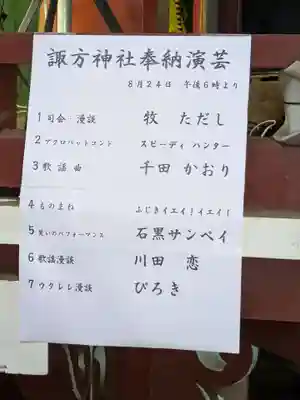 諏方神社奉納演芸
8月24日 午後6時より
1 司会 漫談 牧 ただし
2 アクロバットコンド スピーディ ハンター
3 歌 謡 曲 千田 かおり
4 ものまね ふじきイエイ!イエイ!
5 笑いのパフォーマンス 石黒サンペイ
6 歌謡漫談 川田 恋
7 ウクレレ漫談 ぴろき